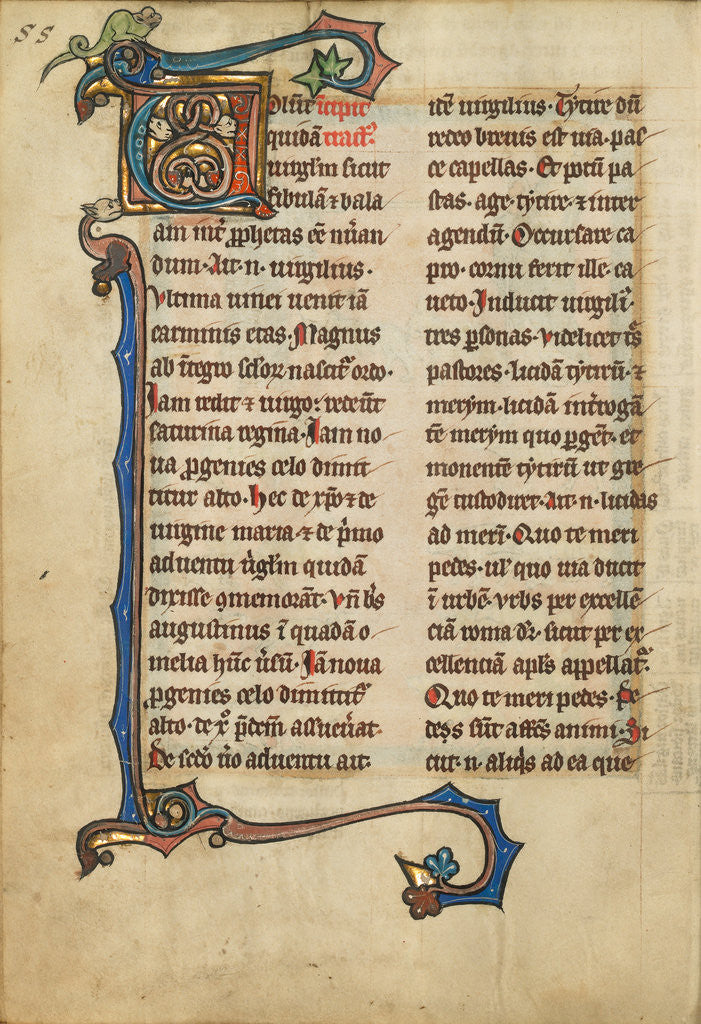 SS
Volūt īcipit
quidā tract᷒.
uirgl'm sicut
sibillā ⁊ bala
am int᷑ ꝓphetas eē nūian
dum. Ait .n. uirgilius.
Vltima cumei uenit iā
carminis etas. Magnus
ab ītegro sclōꝝ nascit᷑ ordo.
Iam redit ⁊ uirgo: redeūt
saturnia regina. Iam no
ua ꝓgenies celo dimit
titur alto. Hec de xp̄o ⁊ de
uirgine maria ⁊ de p̄mo
aduentu u̓gl'm quidā
dixisse ꝯmemorāt. Vn̄ b̄s
augustinus ī quadā o
melia hūc u̓sū. Iā noua
ꝓgenies celo dimitit᷑
alto. de xp̄o p̄dcm̄ asseu̓at.
De scd̄o u̓o aduentu ait
itē uirgilius. Tytire dū
redeo breuis est uia. pas
ce capellas. Et potū pa
stas. age. tytire. ⁊ inter
agendū. Occursare ca
pro. cornu ferit ille. ca
ueto. Inducit uirgili᷒.
tres ꝑsonas. videlicet tͥs
pastores. licidā tytirū. ⁊
merym. licidā int᷑rogā
tē merym quo ꝑgēt. et
monentē tytirū ut gre
gē custodiret. Ait .n. licidas
ad merī. Quo te meri
pedes. ul' quo uia ducit
ī urbē. Vrbs per excellē
ciā roma dr̄. sicut per ex
cellenciā apl's appellat᷑.
Quo te meri pedes. Pe
des sūt affc̄s animi. Si
cut .n. aliqͥs ad ea que